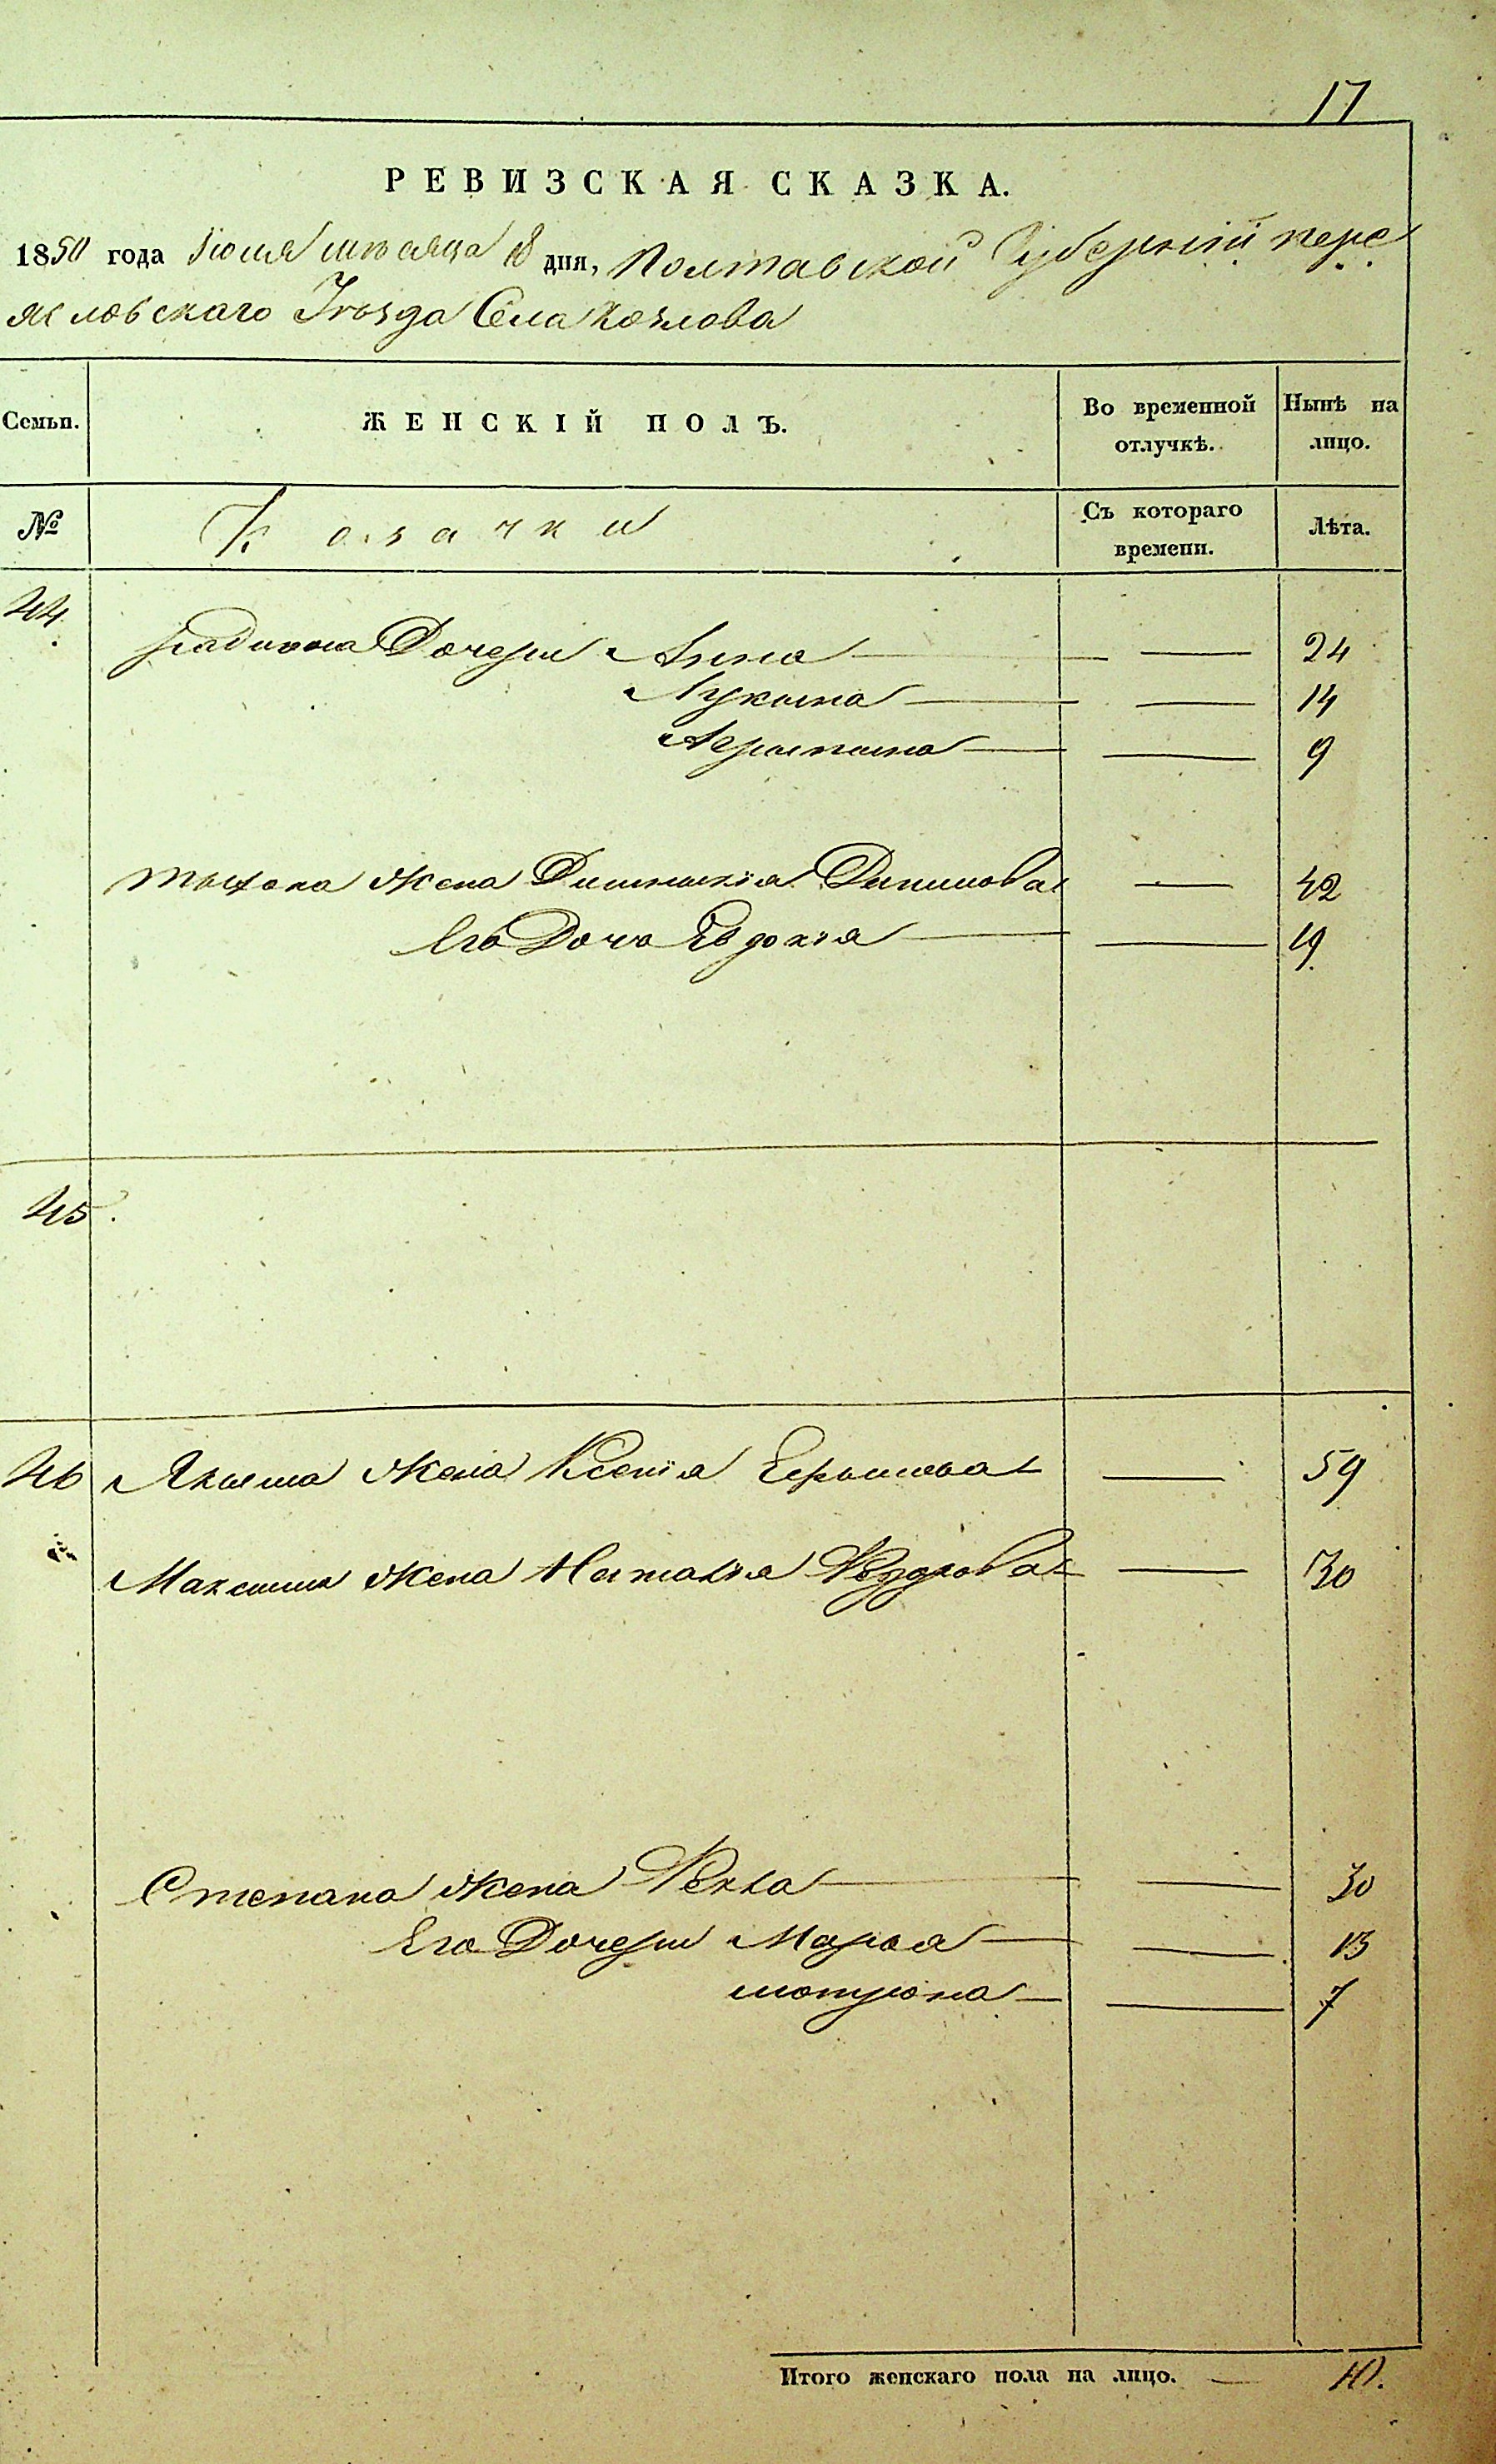 17
РЕВИЗСКАЯ СКАЗКА.
1850 года Июля мѣсяца 18 дня, Полтавской Губерніи пере
яславскаго Уѣзда Села Козлова
Семьи. ЖЕНСКІЙ ПОЛЪ. Во временной отлучкѣ. Нынѣ на лицо.
№ Козачки Съ котораго времени. Лѣта.
44.
Радиона Дочери Анна — — 24
Лукина — — 14
Агрипина — — 9
Тихона жена Домникія — 42
Его Дочь Евдокія — — 19.
45.
46 Акима жена Ксенія — 59
Максима жена Наталія Ѳедорова — 30
Степана жена Ѳекла — — 30
Его Дочери Марья — — 13
мотрона — — 7
Итого женскаго пола на лицо. — 10.